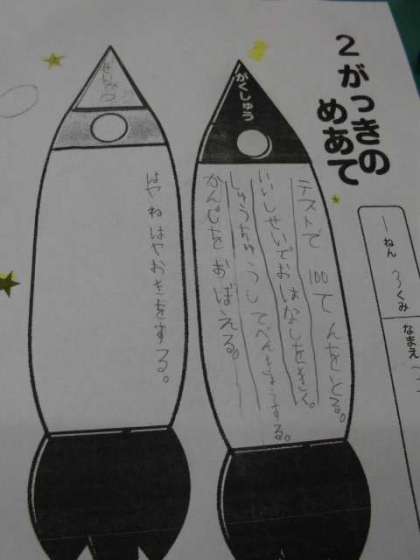 2がっきの
めあて
一ねん
くみ
なまえ
がくしゅう
テストで100てんをとる。
いいしせいでおはなしをきく。
しゅうちゅうしてべんきょうする。
かんじをおぼえる。
せいかつ
はやねはやおきをする。